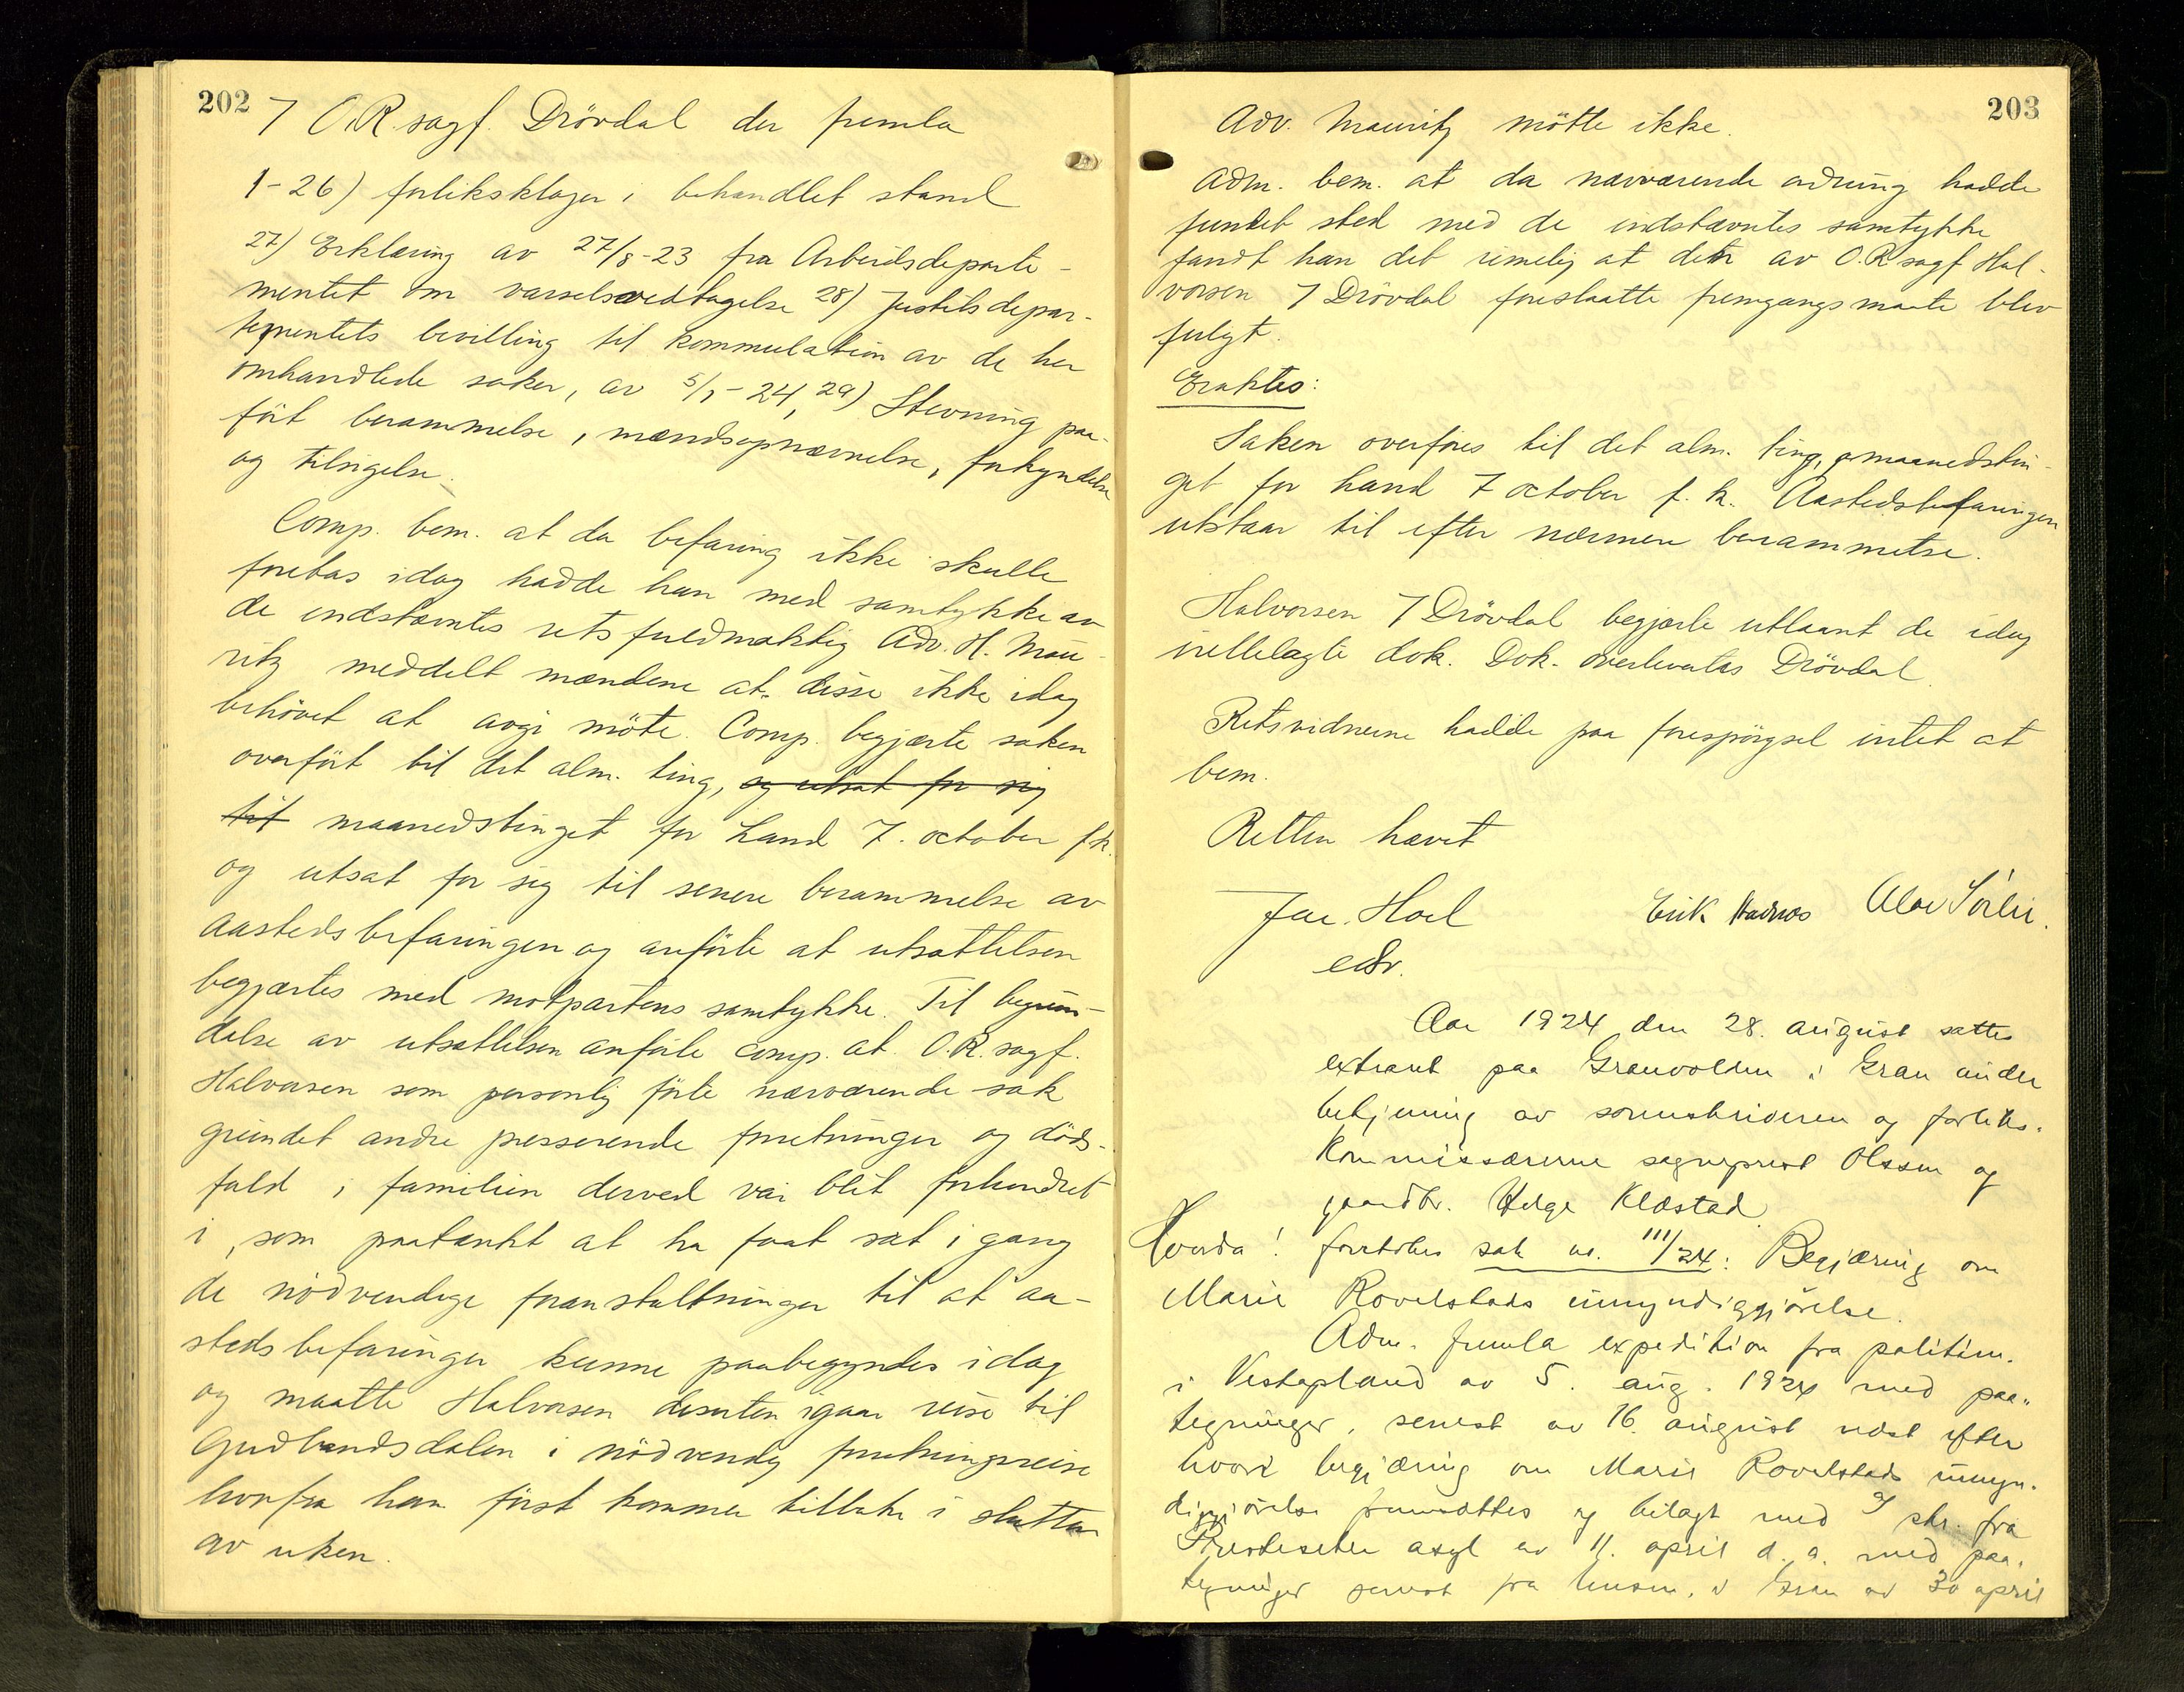 202
7 O.R.sagf. Drövdal der fremla
1-26) forliksklager i behandlet stand
27) Erklæring av 27/8-23 fra Arbeidsdeparte-
mentet om varselsvedtagelse 28) Justitsdepar-
tementets bevilling til kommulation av de her
omhandlede saker, av 5/7-24, 29) Stevning paa-
fört berammelse, mændsopnævnelse, forkyndelse
og tilsigelse.
Comp. bem. at da befaring ikke skulle
foretas idag hadde han med samtykke av
de indstævntes retsfuldmæktig Adv. H. Mau-
ritz meddelt mændene at disse ikke idag
behövet at avgi möte. Comp. begjærte saken
overfört til det alm. ting, og utsat for sig
til maanedstinget for Land 7. october f.k.
og utsat for sig til senere berammelse av
aastedsbefaringen og anförte at utsættelsen
begjærtes med motpartens samtykke. Til begrun-
delse av utsættelsen anförte comp. at O.R.sagf.
Halvorsen som personlig förte nærværende sak
grundet andre presserende forretninger og döds-
fald i familien derved var blit forhindret
i, som paatænkt at ha faat sat i gang
de nödvendige foranstaltninger til at aa-
stedsbefaringer kunne paabegyndes idag
og maatte Halvorsen desuten igaar reise til
Gudbrandsdalen i nödvendig forretningsreise
hvorfra han först kommer tilbake i slutten
av uken.
203
Adv. Mauritz mötte ikke.
Adm. bem. at da nærværende ordning hadde
fundet sted med de indstævntes samtykke
fandt han det rimelig at den av O.R.sagf. Hal-
vorsen 7 Drövdal foreslaatte fremgangsmaate blev
fulgt.
Eraktes:
Saken overföres til det alm. ting, maanedstin-
get for Land 7 october f.k. Aastedsbefaringen
utstaar til efter nærmere berammelse.
Halvorsen 7 Drövdal begjærte utlaant de idag
irettelagte dok. Dok. overlevertes Drövdal.
Retsvidnerne hadde paa forespörgsel intet at
bem.
Retten hævet
Jac. Hoel
edr.
Erik Hadnæs Olav Sörlie.
Aar 1924 den 28. august sattes
extraret paa Granvolden i Gran under
betjening av sorenskriveren og forliks-
kommissærerne sogneprest Olssen og
gaardbr. Helge Klæstad
Hvorda! foretokes sak nr. 111/24: Begjæring om
Marie Rovelstads umyndiggjörelse.
Adm. fremla expedition fra politim.
i Vestopland av 5. aug. 1924 med paa-
tegninger, senest av 16. august næst efter
hvori begjæring om Marie Rovelstads umyn-
diggjörelse fremsættes og bilagt med skr. fra
Presteseter asyl av 11. april d.a. med paa-
tegninger senest fra lensm. i Gran av 30 april